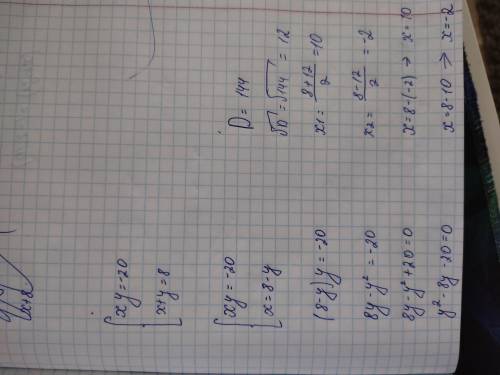 x+8
{ xy = -20
x+y = 8
{ xy = -20
x = 8-y
(8-y)y = -20
8y - y² = -20
8y - y² + 20 = 0
y² - 8y - 20 = 0
D = 144
√D = √144 = 12
x1 = (8+12)/2 = 10
x2 = (8-12)/2 = -2
x = 8-(-2) → x = 10
x = 8-10 → x = -2